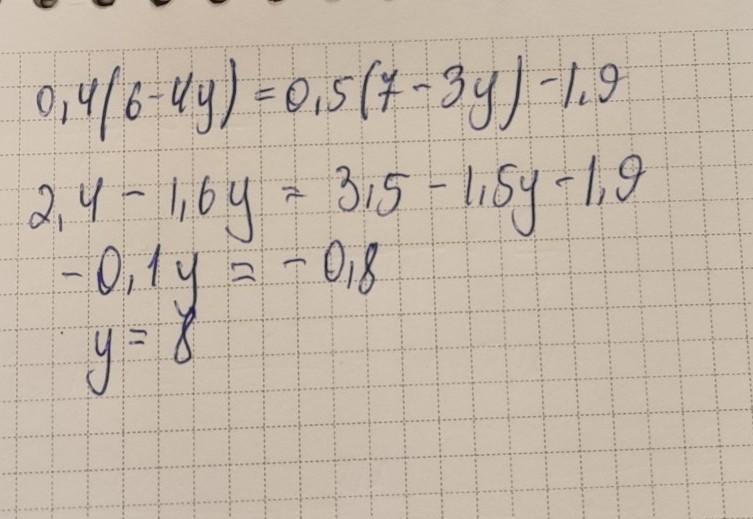 0,4(6-4y)=0,5(7-3y)-1,9
2,4-1,6y=3,5-1,5y-1,9
-0,1y=-0,8
y=8